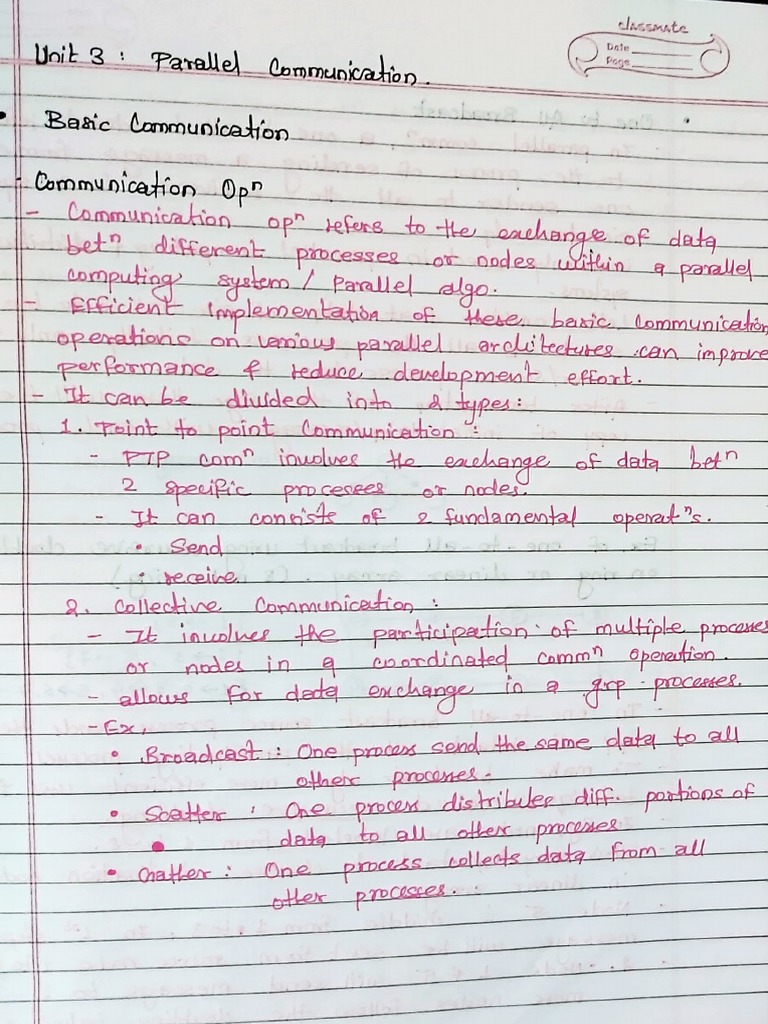 classmate
Date
Page
Unit 3 : Parallel Communication.
• Basic Communication
- Communication Opⁿ
- Communication opⁿ refers to the exchange of data
betⁿ different processes or nodes within a parallel
computing system / Parallel algo.
- Efficient implementation of these basic communication
operations on various parallel architectures can improve
performance & reduce development effort.
- It can be divided into 2 types:
1. Point to point Communication :
- PTP comⁿ involves the exchange of data betⁿ
2 specific processes or nodes.
- It can consists of 2 fundamental operatⁿs.
• Send
• receive
2. Collective Communication :
- It involves the participation of multiple processes
or nodes in a coordinated commⁿ operation.
- allows for data exchange in a grp processes.
- Ex,
• Broadcast : One process send the same data to all
other processes.
• Scatter : One process distributes diff. portions of
• data to all other processes
• Gather : One process collects data from all
other processes.